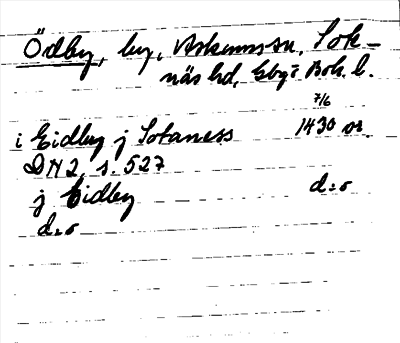 Ödby, by, Askums sn, Sot-
näs hd, Gbg o Boh. l.
7/6
i Eidby j Sotaness 1430 or.
DN 2, s. 527
j Eidby d:o
d:o